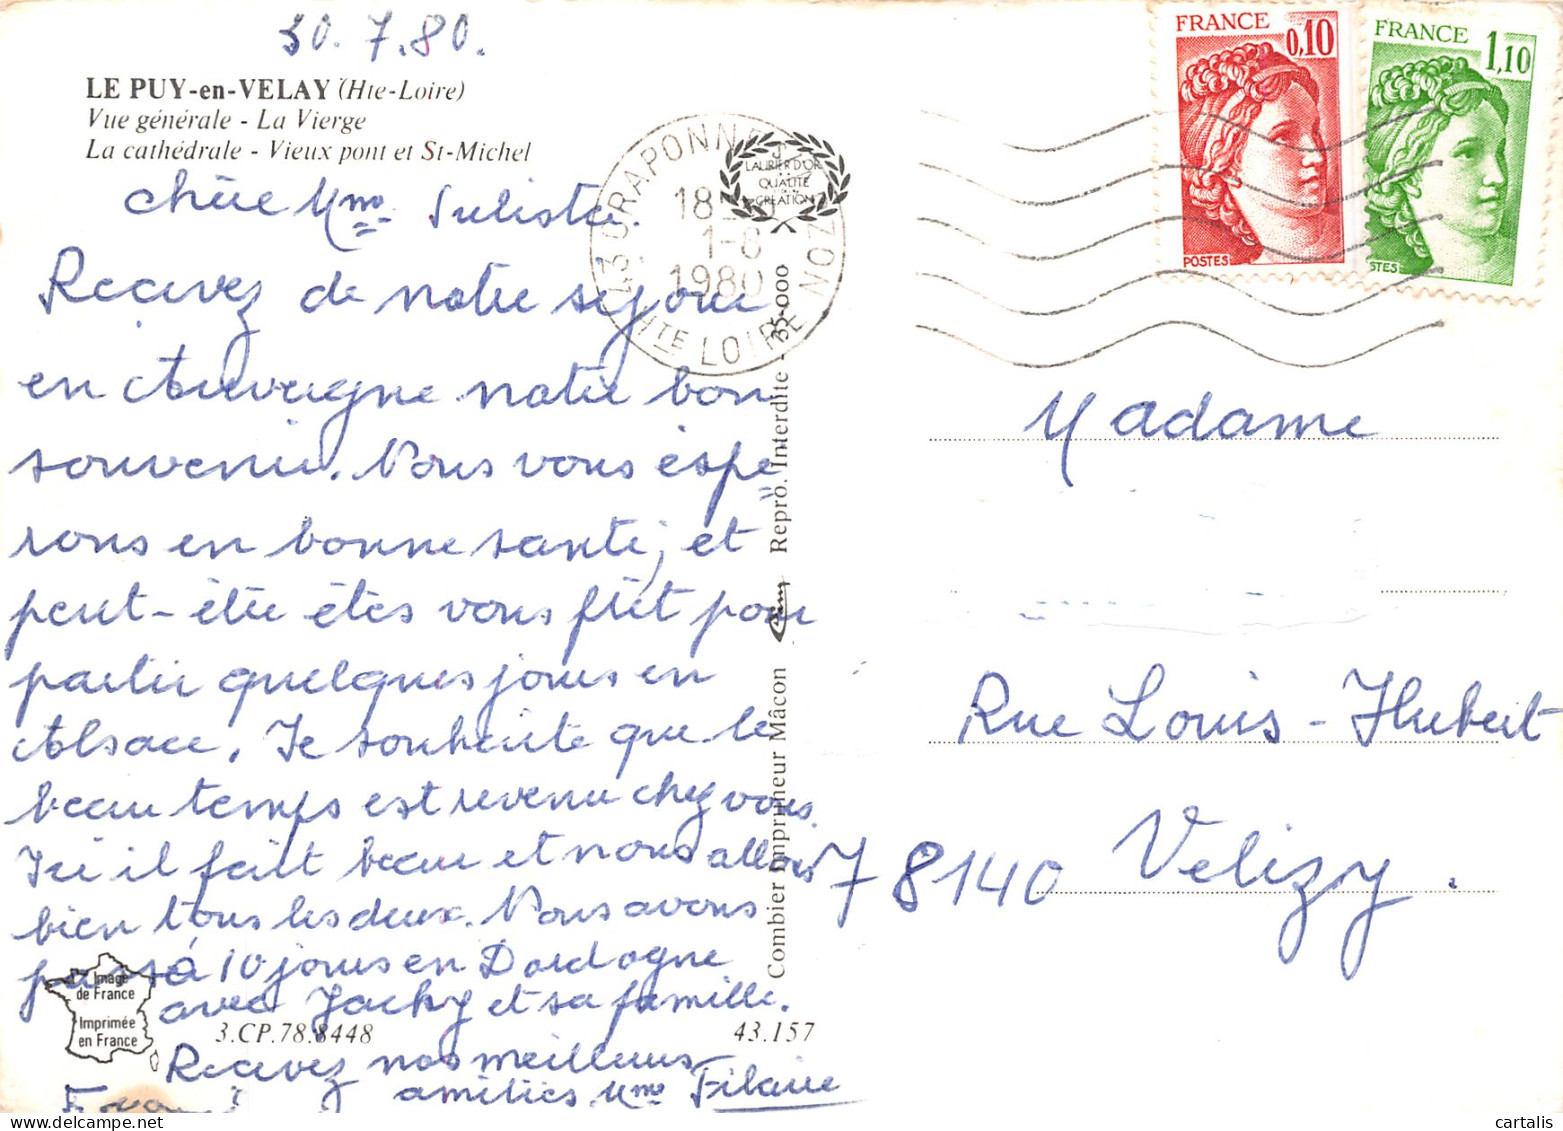 30.7.80.
LE PUY-en-VELAY (Hte-Loire)
Vue générale - La Vierge
La cathédrale - Vieux pont et St-Michel
Chère Mme
Recevez de notre séjour
en Auvergne notre bon
souvenir. Nous vous espé-
rons en bonne santé, et
peut-être êtes vous prêt pour
partir quelques jours en
Alsace. Je souhaite que le
beau temps est revenu chez vous.
Ici il fait beau et nous allons
bien tous les deux. Nous avons
passé 10 jours en Dordogne
avec Jacky et sa famille.
Recevez nos meilleures
amitiés Mme Filaire
Image
de France
Imprimée
en France
3.CP.78.8448
43.157
43 CRAPONNE
ZON
HTE LOIRE
18
1-8
1980
LAURIER D'OR
QUALITÉ
CRÉATION
Combier Imprimeur Mâcon
Repro. Interdite - 35-000
FRANCE
0,10
POSTES
FRANCE
1,10
STES
Madame
Rue Louis-Hubert
78140 Velizy.
cartalis